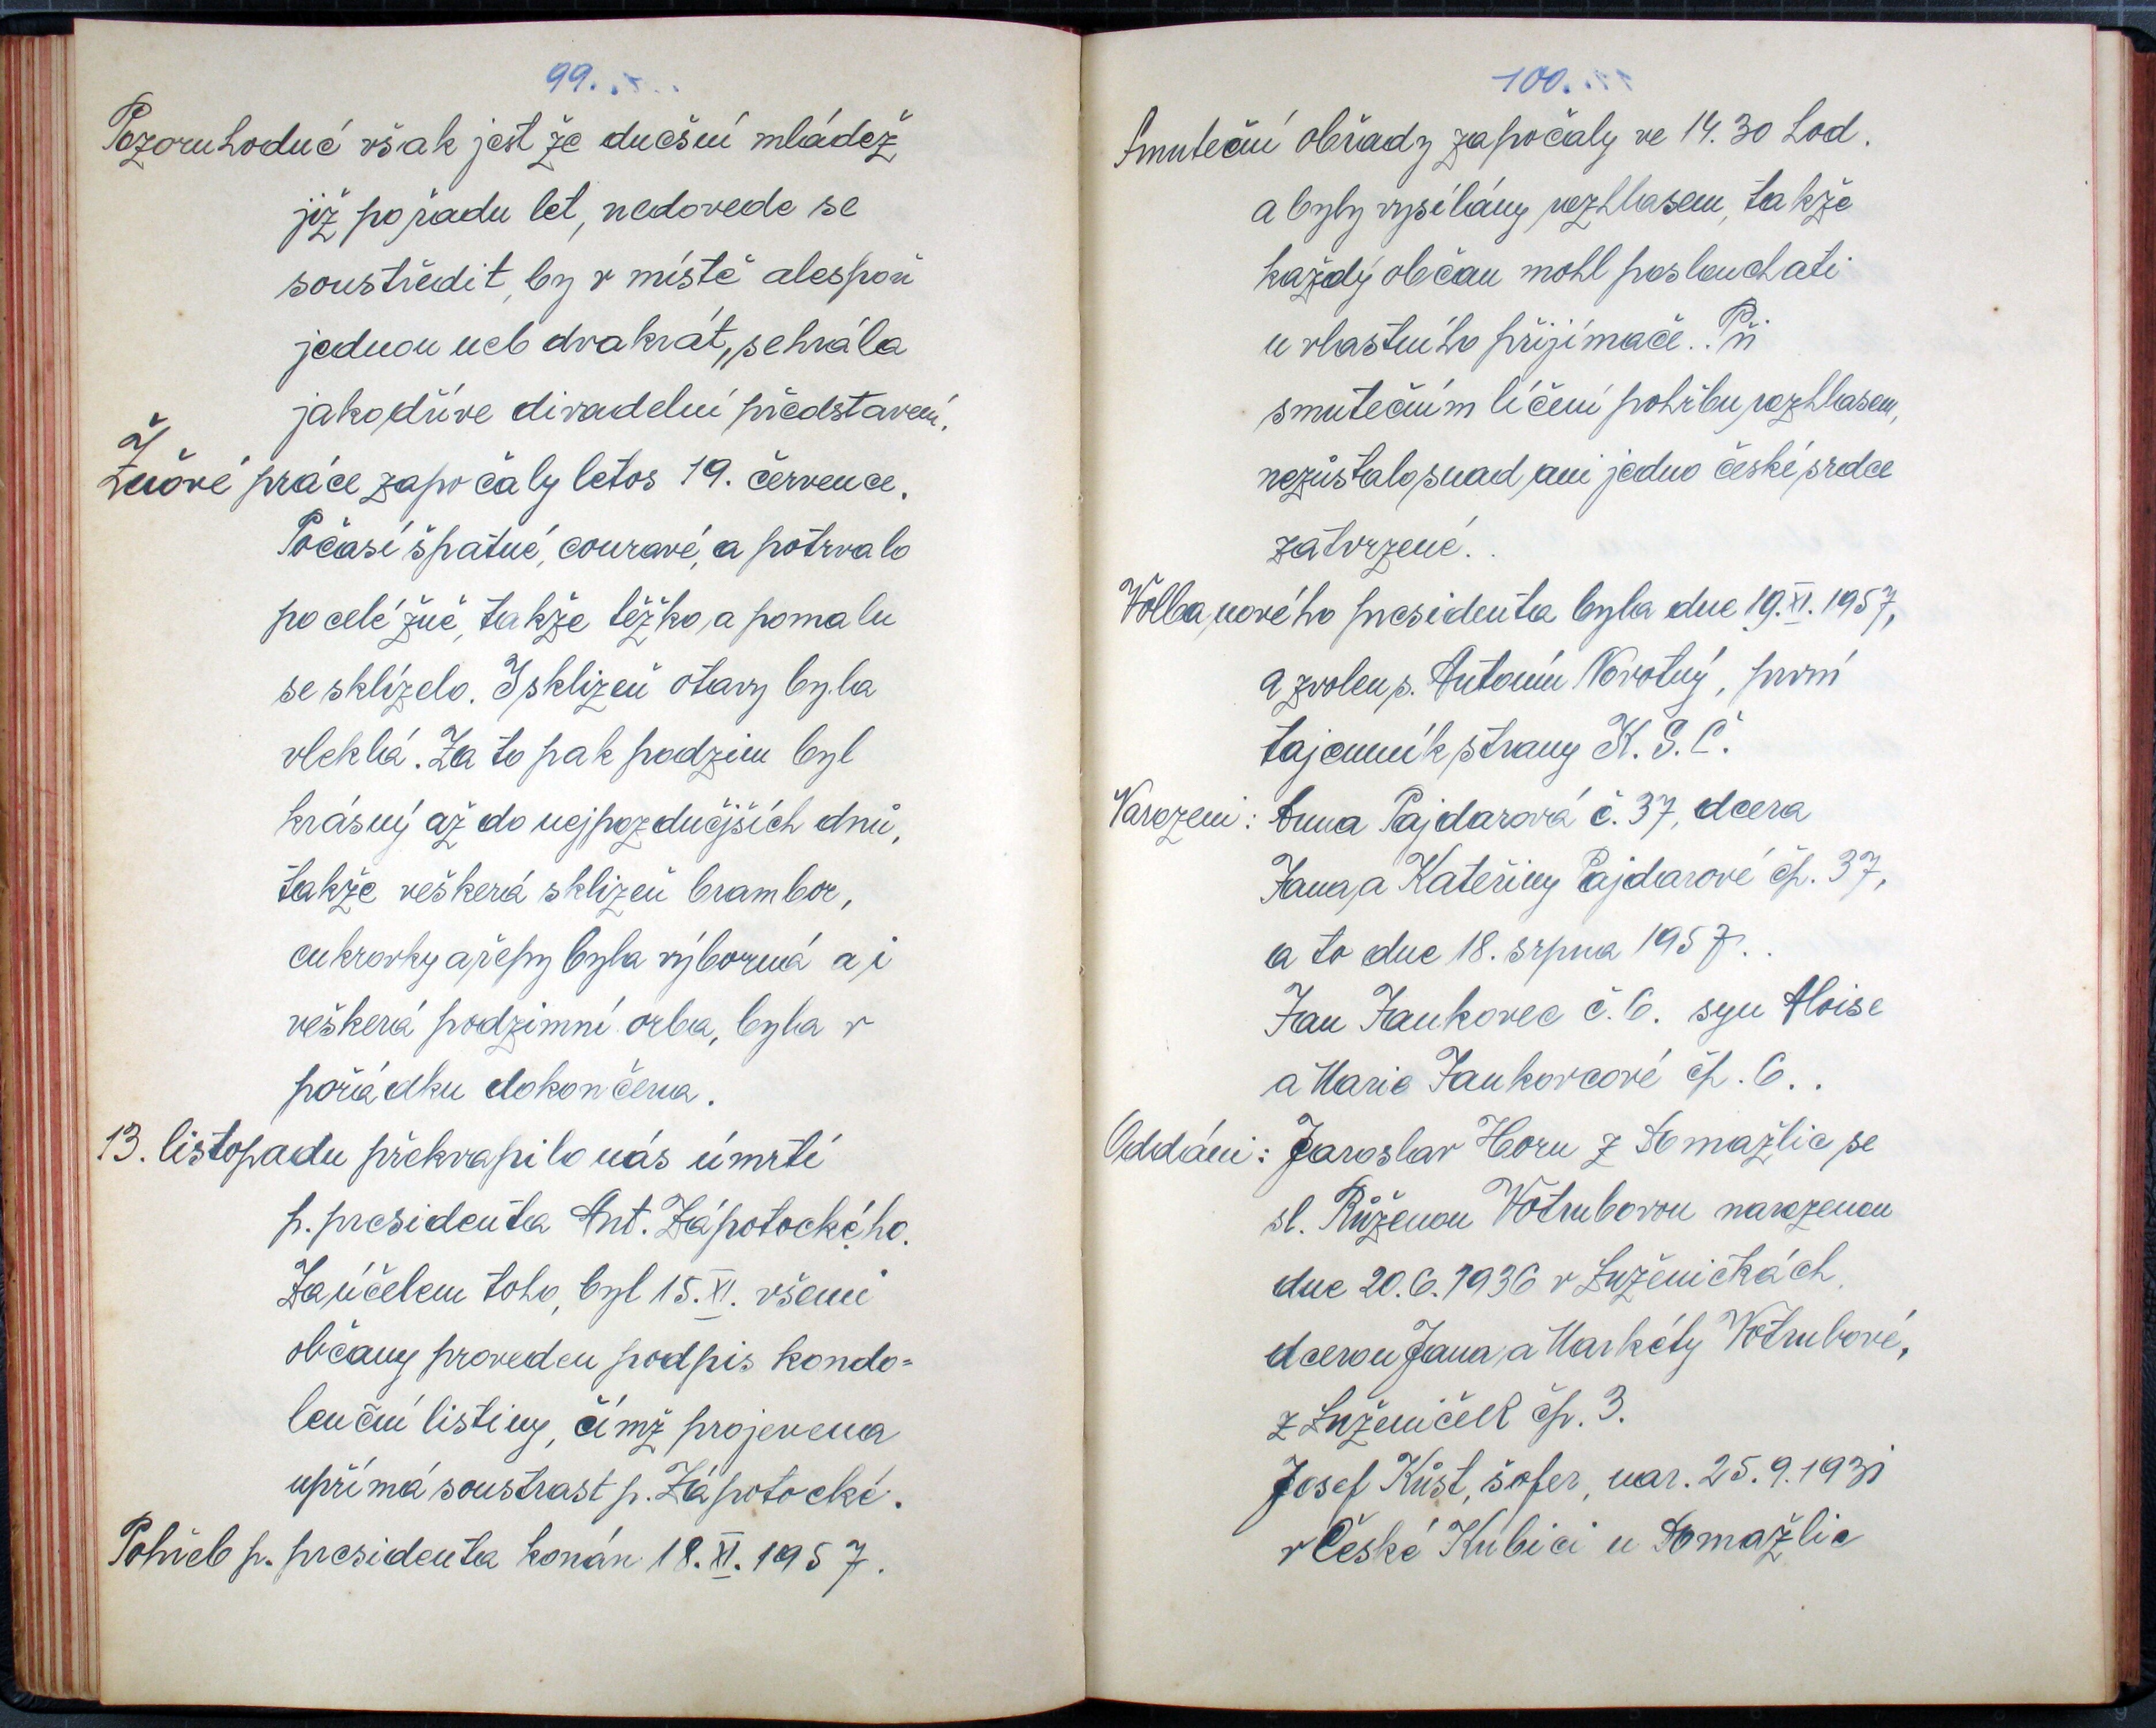 99.
Pozoruhodné však jest že dnešní mládež
již po řadu let, nedovede se
soustředit, by v místě alespoň
jednou neb dvakrát, sehrála
jako dříve divadelní představení.
Žňové práce započaly letos 19. července.
Počasí špatné, couravé, a potrvalo
po celé žně, takže těžko, a pomalu
se sklízelo. I sklizeň otavy byla
vleklá. Za to pak podzim byl
krásný až do nejpozdnějších dnů,
takže veškerá sklizeň brambor,
cukrovky a řepy byla výborná a i
veškerá podzimní orba, byla v
pořádku dokončena.
13. listopadu překvapilo nás úmrtí
p. presidenta Ant. Zápotockého.
Za účelem toho, byl 15. XI. všemi
občany proveden podpis kondo=
lenční listiny, čímž projevena
upřímá soustrast p. Zápotocké.
Pohřeb p. presidenta konán 18. XI. 1957.
100.
Smuteční obřady započaly ve 14.30 hod.
a byly vysílány rozhlasem, takže
každý občan mohl poslouchati
u vlastního přijímače. . Při
smutečním líčení pohřbu rozhlasem,
nezůstalo snad ani jedno české srdce
zatvrzené. .
Volba nového presidenta byla dne 19. XI. 1957,
a zvolen p. Antonín Novotný, první
tajemník strany K. S. Č.
Narozeni: Anna Pajdarová č. 37, dcera
Jana a Kateřiny Pajdarové čp. 37,
a to dne 18. srpna 1957. .
Jan Jankovec č. 6. syn Aloise
a Marie Jankovcové čp. 6. .
Oddáni: Jaroslav Horn z Domažlic se
sl. Růženou Votrubovou narozenou
dne 20. 6. 1936 v Luženičkách,
dcerou Jana a Markéty Votrubové,
z Luženiček čp. 3.
Josef Kůst, šofer, nar. 25. 9. 1931
v České Kubici u Domažlic